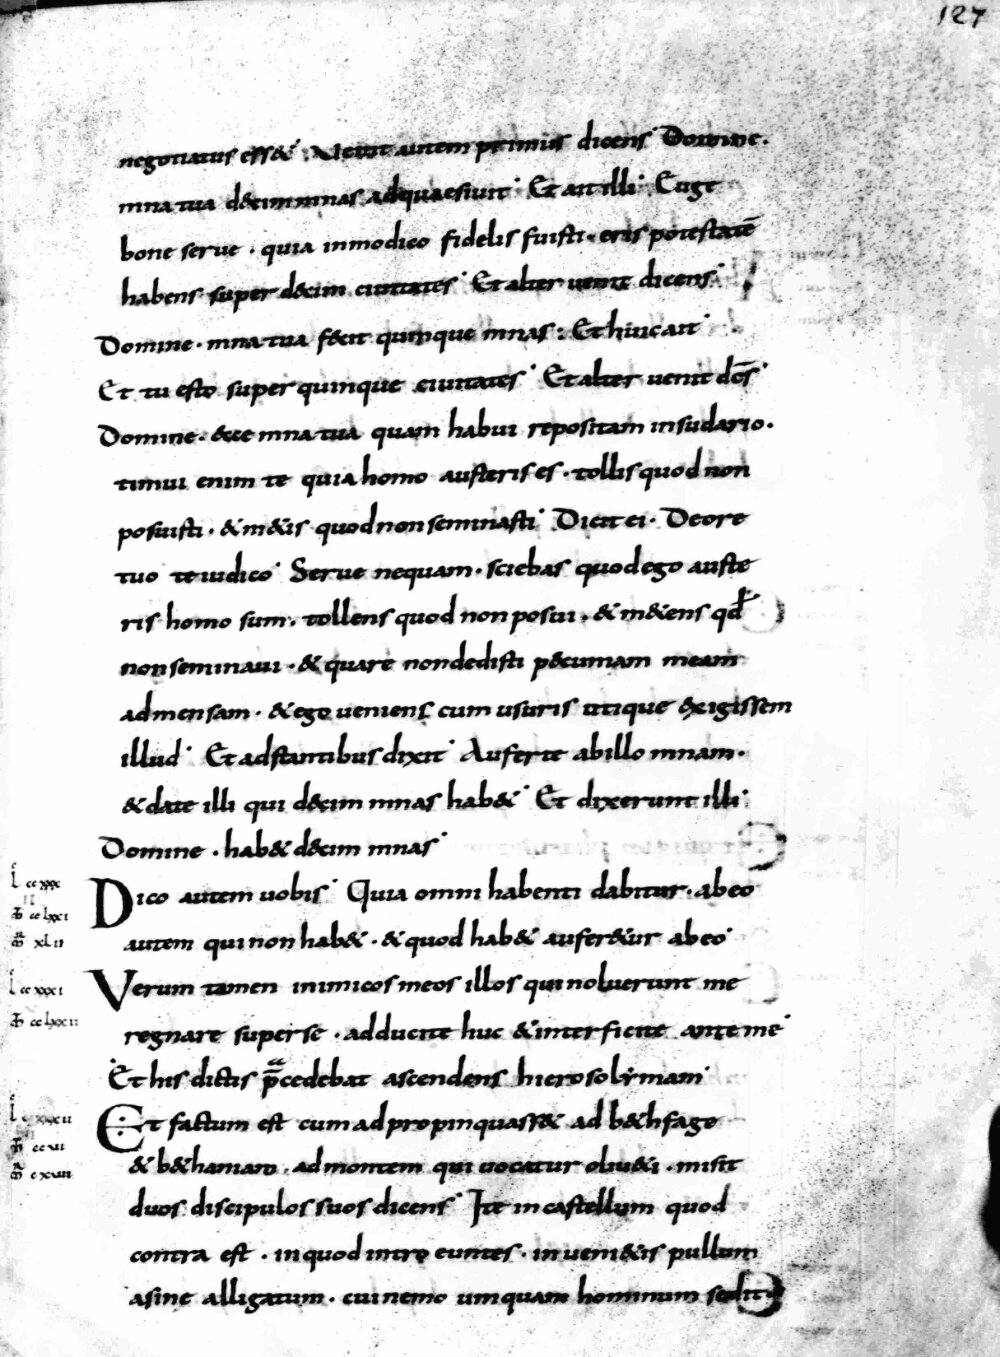 127
negotiatus ess& · Venit autem primus dicens · Domine ·
mna tua d&cim mnas adquaesiuit · Et ait illi · Euge
bone serue · quia inmodico fidelis fuisti · eris potestatē
habens super d&cim ciuitates · Et alter uenit dicens ·
Domine · mna tua f&cit quinque mnas : Et huic ait ·
Et tu esto super quinque ciuitates · Et alter uenit dc̄s ·
Domine · &cce mna tua quam habui repositam insudario ·
timui enim te quia homo austeris es · tollis quod non
posuisti · & m&is quod non seminasti · Dicit ei · Deore
tuo te iudico · Serue nequam · sciebas quod ego auste
ris homo sum · tollens quod non posui · & m&ens qđ
non seminaui · & quare non dedisti p&cuniam meam
admensam · & ego ueniens cum usuris utique exigissem
illud · Et adstantibus dixit · Auferte abillo mnam ·
& date illi qui d&cim mnas hab& · Et dixerunt illi ·
Domine · hab& d&cim mnas ·
L cc xxx
Dico autem uobis · Quia omni habenti dabitur · abeo
cc lxxi
autem qui non hab& · & quod hab& aufer&ur abeo ·
xl ii
L cc xxxi
Verum tamen inimicos meos illos qui noluerunt me
cc lxxii
regnare superse · adducite huc & interficite ante me ·
Et his dictis p̄cedebat ascendens hierosolymam ·
Et factum est cum adpropinquass& ad b&hfage
& b&haniam · admontem qui uocatur oliu&i · misit
duos discipulos suos dicens · Ite incastellum quod
contra est · inquod intro euntes · inueni&is pullum
asine alligatum · cui nemo umquam hominum sedit ·